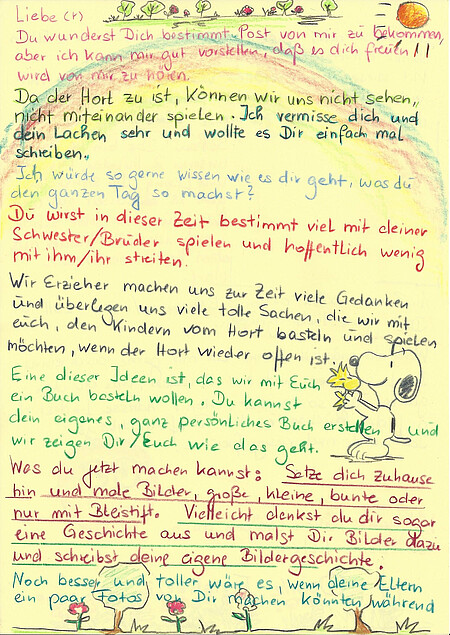 Liebe (r)
Du wunderst Dich bestimmt Post von mir zu bekommen,
aber ich kann mir gut vorstellen, daß es dich freuen
wird von mir zu hören.
Da der Hort zu ist, können wir uns nicht sehen,
nicht miteinander spielen. Ich vermisse dich und
dein Lachen sehr und wollte es Dir einfach mal
schreiben.
Ich würde so gerne wissen wie es dir geht, was du
den ganzen Tag so machst?
Du wirst in dieser Zeit bestimmt viel mit deiner
Schwester/Brüder spielen und hoffentlich wenig
mit ihm/ihr streiten.
Wir Erzieher machen uns zur Zeit viele Gedanken
und überlegen uns viele tolle Sachen, die wir mit
euch, den Kindern vom Hort basteln und spielen
möchten, wenn der Hort wieder offen ist.
Eine dieser Ideen ist, das wir mit Euch
ein Buch basteln wollen. Du kannst
dein eigenes, ganz persönliches Buch erstellen und
wir zeigen Dir/Euch wie das geht.
Was du jetzt machen kannst: Setze dich zuhause
hin und male Bilder, große, kleine, bunte oder
nur mit Bleistift. Vielleicht denkst du dir sogar
eine Geschichte aus und malst Dir Bilder dazu
und schreibst deine eigene Bildergeschichte.
Noch besser und toller wäre es, wenn deine Eltern
ein paar Fotos von Dir machen könnten während